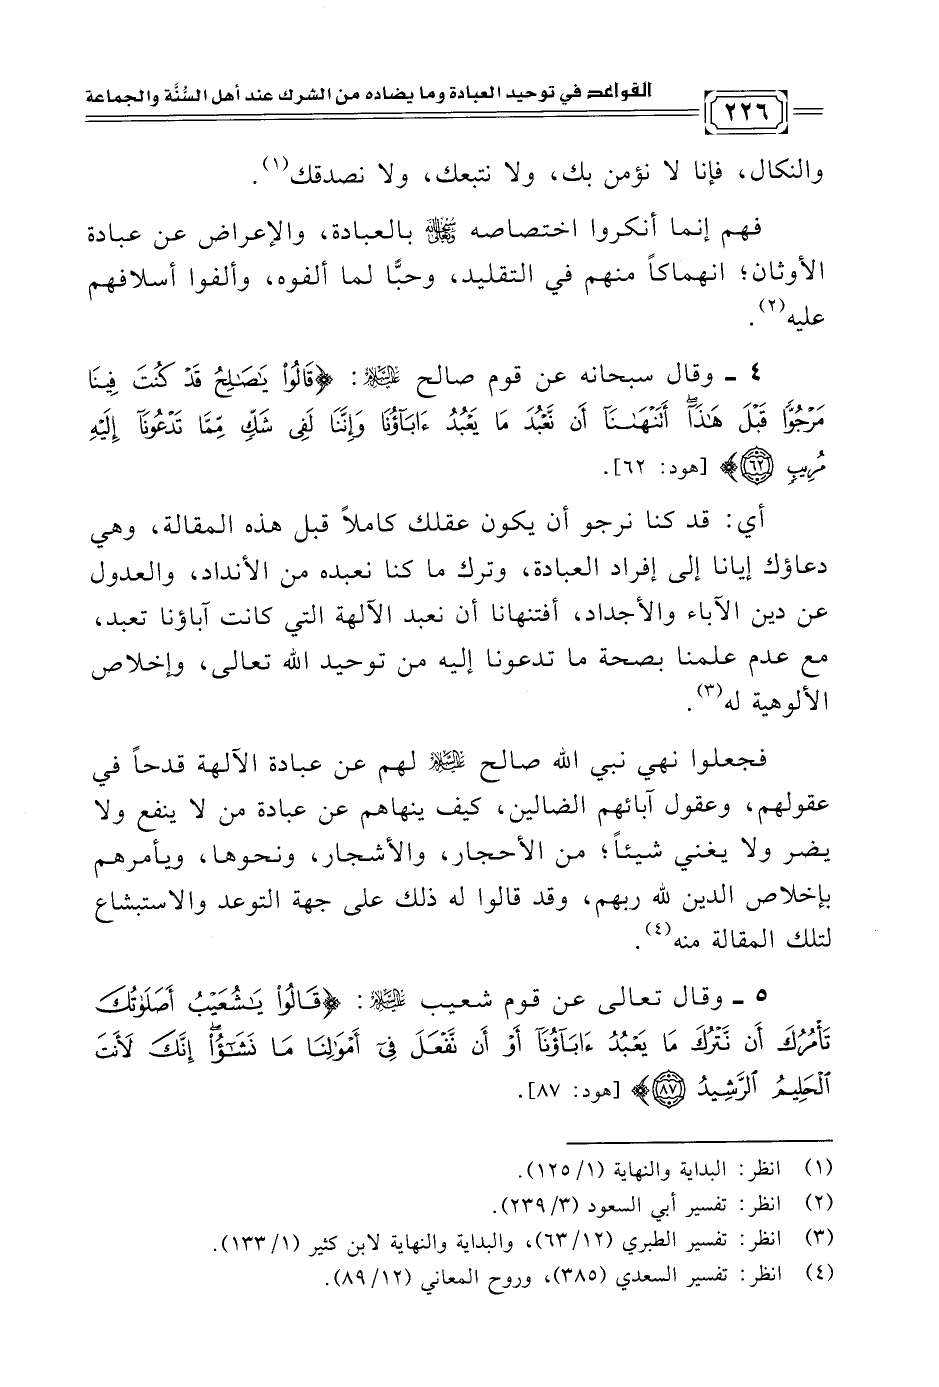 القواعد في توحيد العبادة وما يضاده من الشرك عند أهل السُّنَّة والجماعة
٢٢٦
والنكال، فإنا لا نؤمن بك، ولا نتبعك، ولا نصدقك(١).
فهم إنما أنكروا اختصاصه ﷾ بالعبادة، والإعراض عن عبادة
الأوثان؛ انهماكاً منهم في التقليد، وحبًّا لما ألفوه، وألفوا أسلافهم
عليه(٢).
٤ ـ وقال سبحانه عن قوم صالح عليه السلام: ﴿قَالُوا۟ يَـٰصَـٰلِحُ قَدْ كُنتَ فِينَا
مَرْجُوًّا قَبْلَ هَـٰذَآ ۖ أَتَنْهَىٰنَآ أَن نَّعْبُدَ مَا يَعْبُدُ ءَابَآؤُنَا وَإِنَّنَا لَفِى شَكٍّ مِّمَّا تَدْعُونَآ إِلَيْهِ
مُرِيبٍ ٦٢﴾ [هود: ٦٢].
أي: قد كنا نرجو أن يكون عقلك كاملاً قبل هذه المقالة، وهي
دعاؤك إيانا إلى إفراد العبادة، وترك ما كنا نعبده من الأنداد، والعدول
عن دين الآباء والأجداد، أفتنهانا أن نعبد الآلهة التي كانت آباؤنا تعبد،
مع عدم علمنا بصحة ما تدعونا إليه من توحيد الله تعالى، وإخلاص
الألوهية له(٣).
فجعلوا نهي نبي الله صالح عليه السلام لهم عن عبادة الآلهة قدحاً في
عقولهم، وعقول آبائهم الضالين، كيف ينهاهم عن عبادة من لا ينفع ولا
يضر ولا يغني شيئاً؛ من الأحجار، والأشجار، ونحوها، ويأمرهم
بإخلاص الدين لله ربهم، وقد قالوا له ذلك على جهة التوعد والاستبشاع
لتلك المقالة منه(٤).
٥ ـ وقال تعالى عن قوم شعيب عليه السلام: ﴿قَالُوا۟ يَـٰشُعَيْبُ أَصَلَوٰتُكَ
تَأْمُرُكَ أَن نَّتْرُكَ مَا يَعْبُدُ ءَابَآؤُنَآ أَوْ أَن نَّفْعَلَ فِىٓ أَمْوَٰلِنَا مَا نَشَـٰٓؤُا۟ ۖ إِنَّكَ لَأَنتَ
ٱلْحَلِيمُ ٱلرَّشِيدُ ٨٧﴾ [هود: ٨٧].
(١) انظر: البداية والنهاية (١/ ١٢٥).
(٢) انظر: تفسير أبي السعود (٣/ ٢٣٩).
(٣) انظر: تفسير الطبري (١٢/ ٦٣)، والبداية والنهاية لابن كثير (١/ ١٣٣).
(٤) انظر: تفسير السعدي (٣٨٥)، وروح المعاني (١٢/ ٨٩).